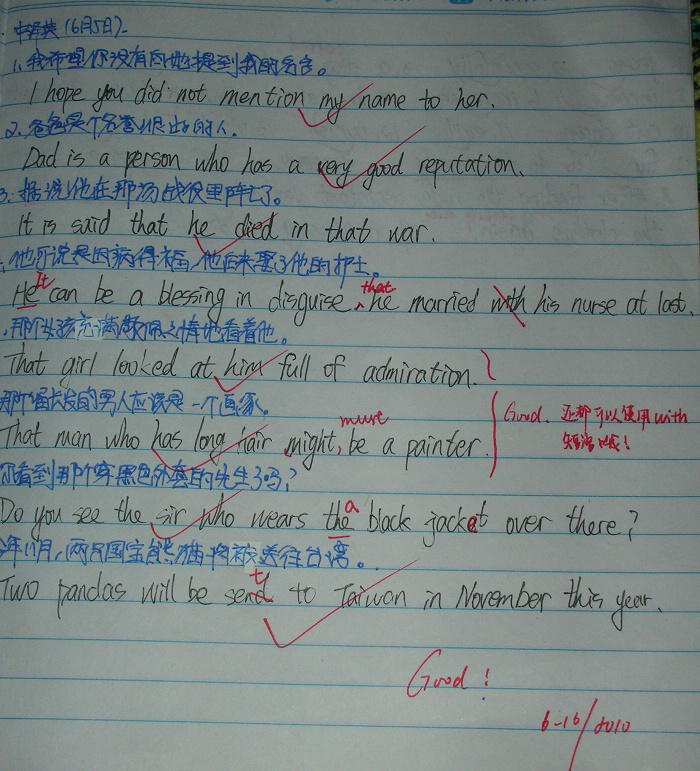 中译英(6月5日).
1.我希望你没有向她提到我的名字。
I hope you did not mention my name to her.
2.爸爸是个名誉很好的人.
Dad is a person who has a very good reputation.
3.据说他在那场战役里阵亡了。
It is said that he died in that war.
他可说是因病得福,他后来娶了他的护士。
It that
He can be a blessing in disguise, he married with his nurse at last.
那个女孩充满着佩之情地看着他。
That girl looked at him full of admiration.
那个留长发的男人应该是一个画家。
must Good. 还都可以使用with
That man who has long hair might be a painter. 短语哦!
你看到那个穿黑色外套的先生了吗?
a
Do you see the sir who wears the black jacket over there?
年11月,两只国宝熊猫将被送往台湾。
t
Two pandas will be send to Taiwan in November this year.
Good!
6-16/2010